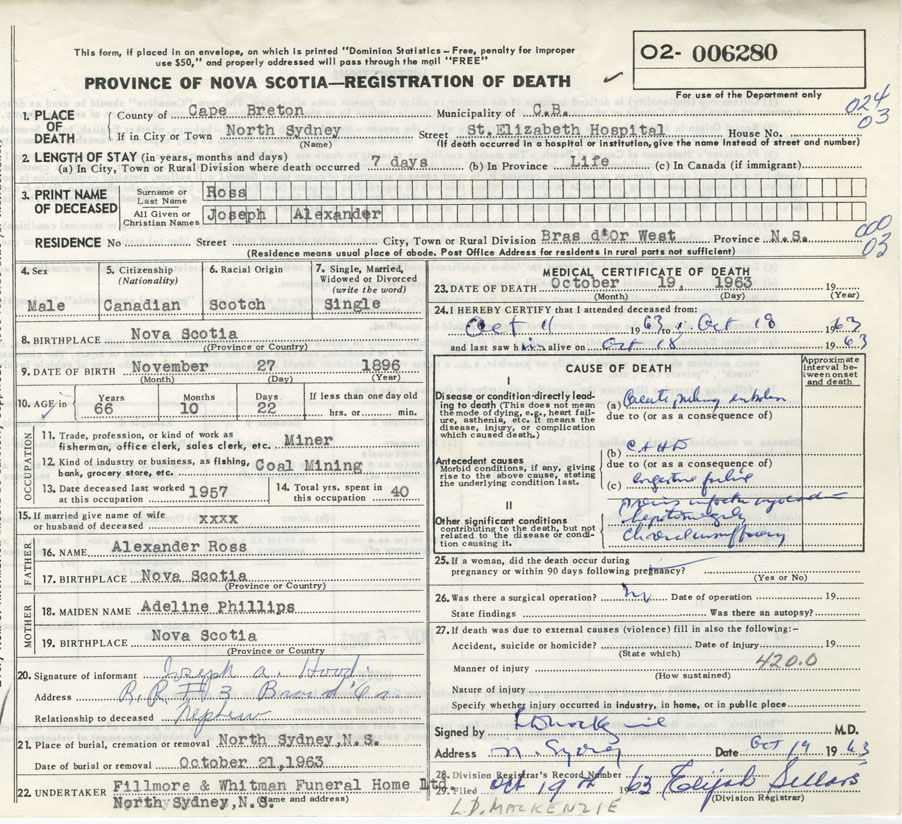 This form, if placed in an envelope, on which is printed "Dominion Statistics – Free, penalty for improper
use $50," and properly addressed will pass through the mail "FREE"
O2- 006280
PROVINCE OF NOVA SCOTIA—REGISTRATION OF DEATH
For use of the Department only
024
03
1. PLACE OF DEATH
County of Cape Breton Municipality of C.B.
If in City or Town North Sydney Street St.Elizabeth Hospital House No.
(Name) (If death occurred in a hospital or institution, give the name instead of street and number)
2. LENGTH OF STAY (in years, months and days)
(a) In City, Town or Rural Division where death occurred 7 days (b) In Province Life (c) In Canada (if immigrant)
3. PRINT NAME OF DECEASED
Surname or Last Name Ross
All Given or Christian Names Joseph Alexander
000
03
RESIDENCE No Street City, Town or Rural Division Bras d'Or West Province N.S.
(Residence means usual place of abode. Post Office Address for residents in rural parts not sufficient)
4. Sex
Male
5. Citizenship (Nationality)
Canadian
6. Racial Origin
Scotch
7. Single, Married, Widowed or Divorced (write the word)
Single
8. BIRTHPLACE Nova Scotia
(Province or Country)
9. DATE OF BIRTH November 27 1896
(Month) (Day) (Year)
10. AGE in Years 66 Months 10 Days 22 If less than one day old hrs. or min.
OCCUPATION
11. Trade, profession, or kind of work as fisherman, office clerk, sales clerk, etc. Miner
12. Kind of industry or business, as fishing, bank, grocery store, etc. Coal Mining
13. Date deceased last worked at this occupation 1957
14. Total yrs. spent in this occupation 40
15. If married give name of wife or husband of deceased xxxx
FATHER
16. NAME Alexander Ross
17. BIRTHPLACE Nova Scotia
(Province or Country)
MOTHER
18. MAIDEN NAME Adeline Phillips
19. BIRTHPLACE Nova Scotia
(Province or Country)
20. Signature of informant Joseph A. Hood
Address R.R. # 3 Bras d'Or
Relationship to deceased Nephew
21. Place of burial, cremation or removal North Sydney,N.S.
Date of burial or removal October 21,1963
22. UNDERTAKER Fillmore & Whitman Funeral Home Ltd.
North Sydney,N.S. (Name and address)
MEDICAL CERTIFICATE OF DEATH
23. DATE OF DEATH October 19, 1963 19
(Month) (Day) (Year)
24. I HEREBY CERTIFY that I attended deceased from:
Oct 11 1963 to Oct 18 1963
and last saw him alive on Oct 18 1963
CAUSE OF DEATH
Approximate interval between onset and death
I
Disease or condition directly leading to death (This does not mean the mode of dying, e.g., heart failure, asthenia, etc. It means the disease, injury, or complication which caused death.)
(a)
due to (or as a consequence of)
Antecedent causes
Morbid conditions, if any, giving rise to the above cause, stating the underlying condition last.
(b)
due to (or as a consequence of)
(c)
II
Other significant conditions
contributing to the death, but not related to the disease or condition causing it.
25. If a woman, did the death occur during pregnancy or within 90 days following pregnancy?
(Yes or No)
26. Was there a surgical operation? No Date of operation 19
State findings Was there an autopsy?
27. If death was due to external causes (violence) fill in also the following:–
Accident, suicide or homicide? Date of injury 19
(State which)
420.0
Manner of injury
(How sustained)
Nature of injury
Specify whether injury occurred in industry, in home, or in public place
Signed by M.D.
Address N. Sydney Date Oct 19 1963
28. Division Registrar's Record Number
29. Filed Oct 19th 1963 Elijah Sellars
(Division Registrar)
L.D. MACKENZIE